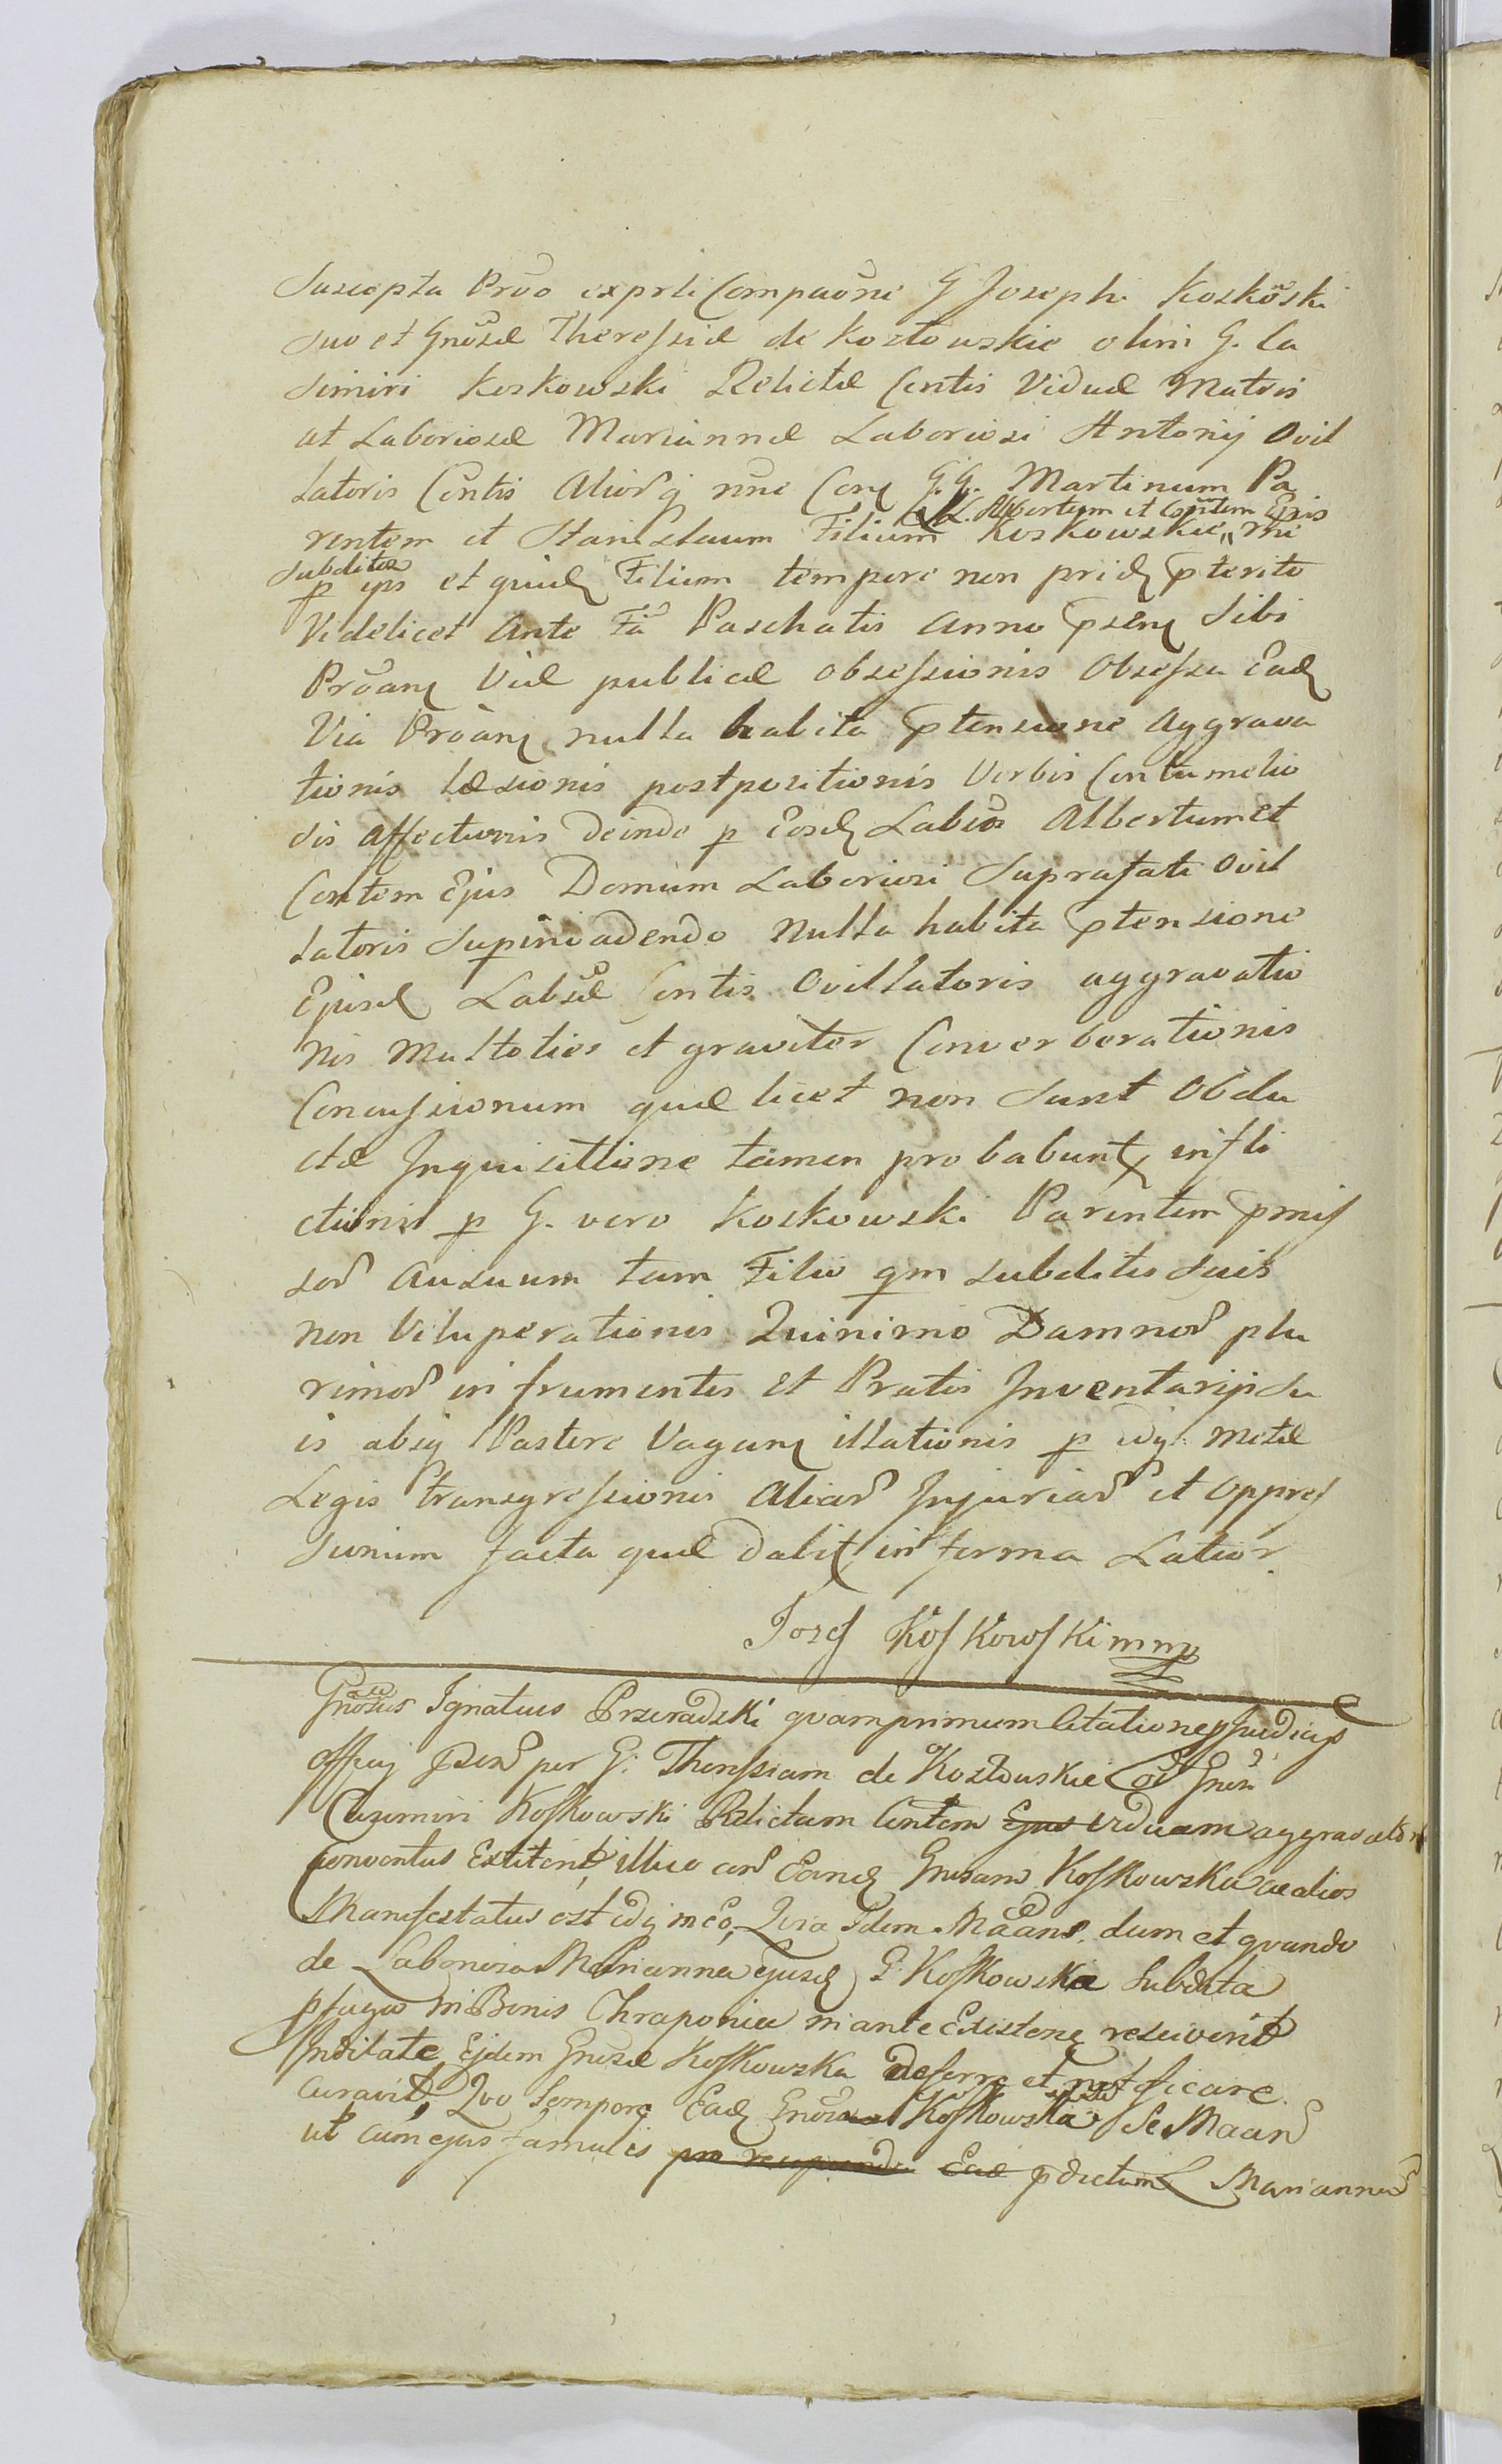 Suscepta Prõo exprti Compaõne G Joseph. Koskõski
suo et Gnõsæ Theressiæ de Kozłowskie olim G. Ca
simiri Koskowski Relictæ Contis Viduæ Matris
at Laboriosæ Mariannæ Laboriosi Antonij Ovil
latoris Contis Alior q nõe Con G.G. Martinum Pa
L. Albertum et Contem Ejus
rentem et Stanislaum Filium Koskowskie rni
subditos
p ips et quid Filium tempore non prid pterito
Videlicet Ante Fã Paschatis anno psen Sibi
Prõan Viæ publicæ obsessionis Obsessa Ead
Via Prõan nulla habita ptensione Aggrava
tionis læsionis postpositionis Verbis Contumelio
sis affectionis deinde p Eosd Labios Albertum et
Contem Ejus Domum Laboriosi Suprafati Ovil
latoris Supinvadendo Nulla habita ptensione
Ejusd Labsæ Contis Ovillatoris aggravatio
nis Multoties et graviter Converberationis
Concussionum quæ licet non sunt Obdu
ctæ Inquisitione tamen probabunt infli
ctionis p G. vero Koskowski Parentem pmis
sor Ausuum tam Filio qm subditis suis
non Vituperationis Quinimo Damnor plu
rimor in frumentis et Pratis Inventarij su
is absq Pastore Vagan illationis p idq Metæ
Legis transgressionis Aliar Injuriar et Oppres
sionum facta quæ dabit in forma Latior.
Josef Koskowski mmp
Gnõsus Ignatius Przeradzki quamprimum Citatione
Officij per G. Theressiam de Kozłowskie
Casimiri Koskowski Relictam Contem Ejus viduam aggravatõ
conventus Extitent, illico con Eand Gnosam Koskowska ac alios
Manifestatus est idq in eo, Quia Idem Mãans dum et quando
de Laboriosa Marianna Ejusd G. Koskowska Subdita
pfuga in Bonis Chraponia mante Existen resciverit
Inditate Ejdem Gnosæ Koskowska deferre et notificare
curavit, Quo tempore Ead Gnosa Koskowska Se Maan
ut cum ejus famulis pro recipienda Ead pdictam L Marianna